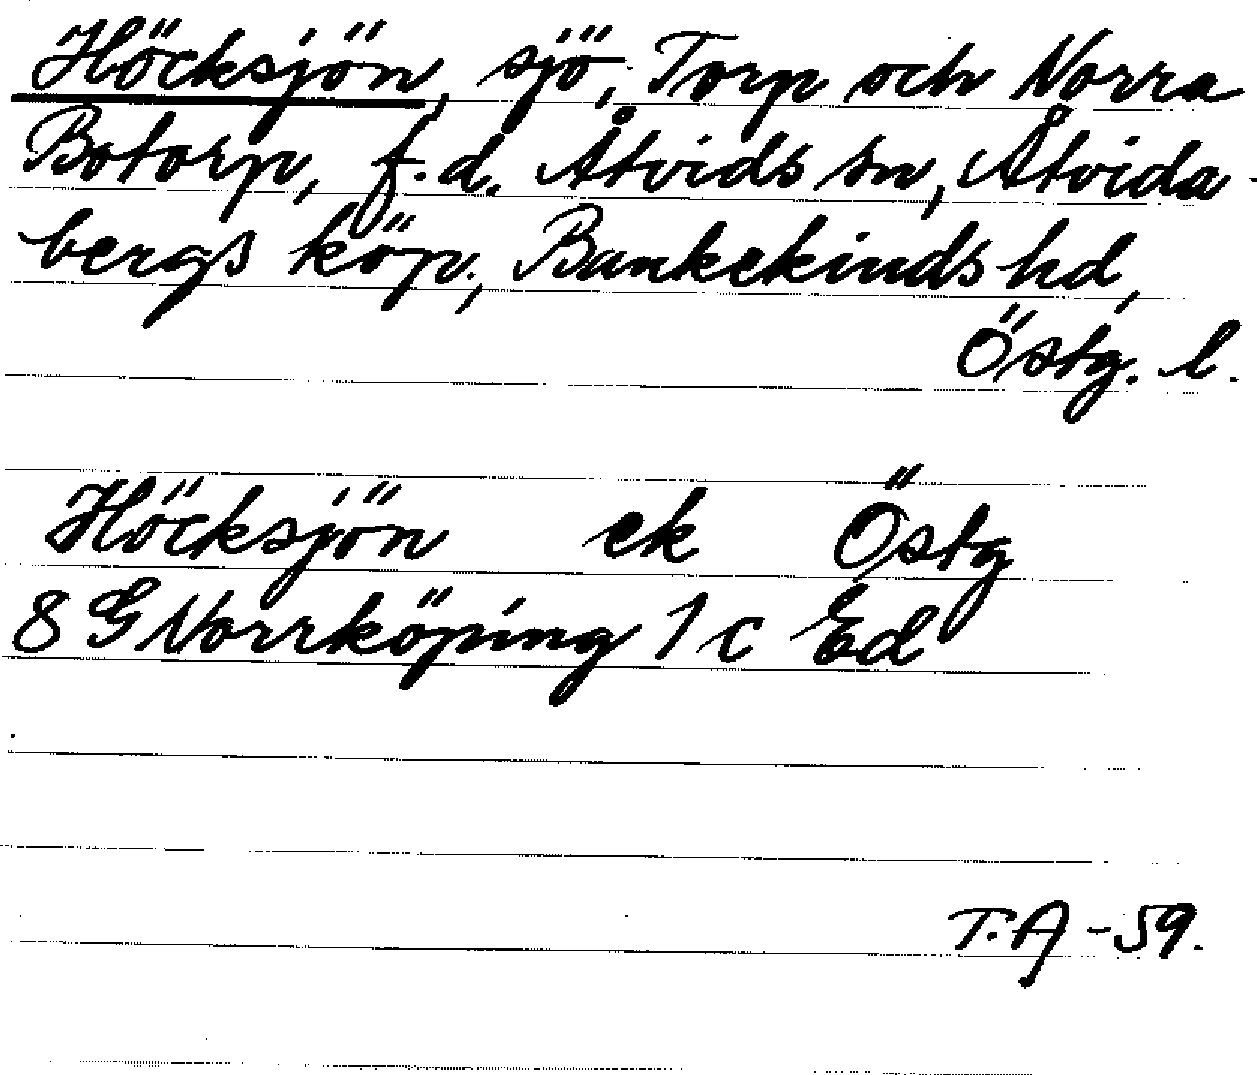 Höcksjön, sjö, Torp och Norra
Botorp, f.d. Åtvids sn, Åtvida-
bergs köp., Bankekinds hd,
Östg. l.
Höcksjön ek Östg
8 G Norrköping 1 c Ed
T.A -59.